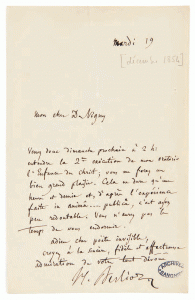 mardi 19
[décembre 1854]
Mon cher De Vigny
Venez donc dimanche prochain à 2 h.
entendre la 2me exécution de mon oratorio
l'Enfance du Christ, vous me ferez un
bien grand plaisir. Cela ne dure qu'une
heure et demie et, d'après l'expérience
faite in animâ publicâ, c'est assez
peu redoutable. Vous n'aurez pas le
temps de vous endormir.
Adieu cher poëte invisible,
croyez à la sincère, fidèle et affectueuse
admiration de votre tout dévoué
H. Berlioz